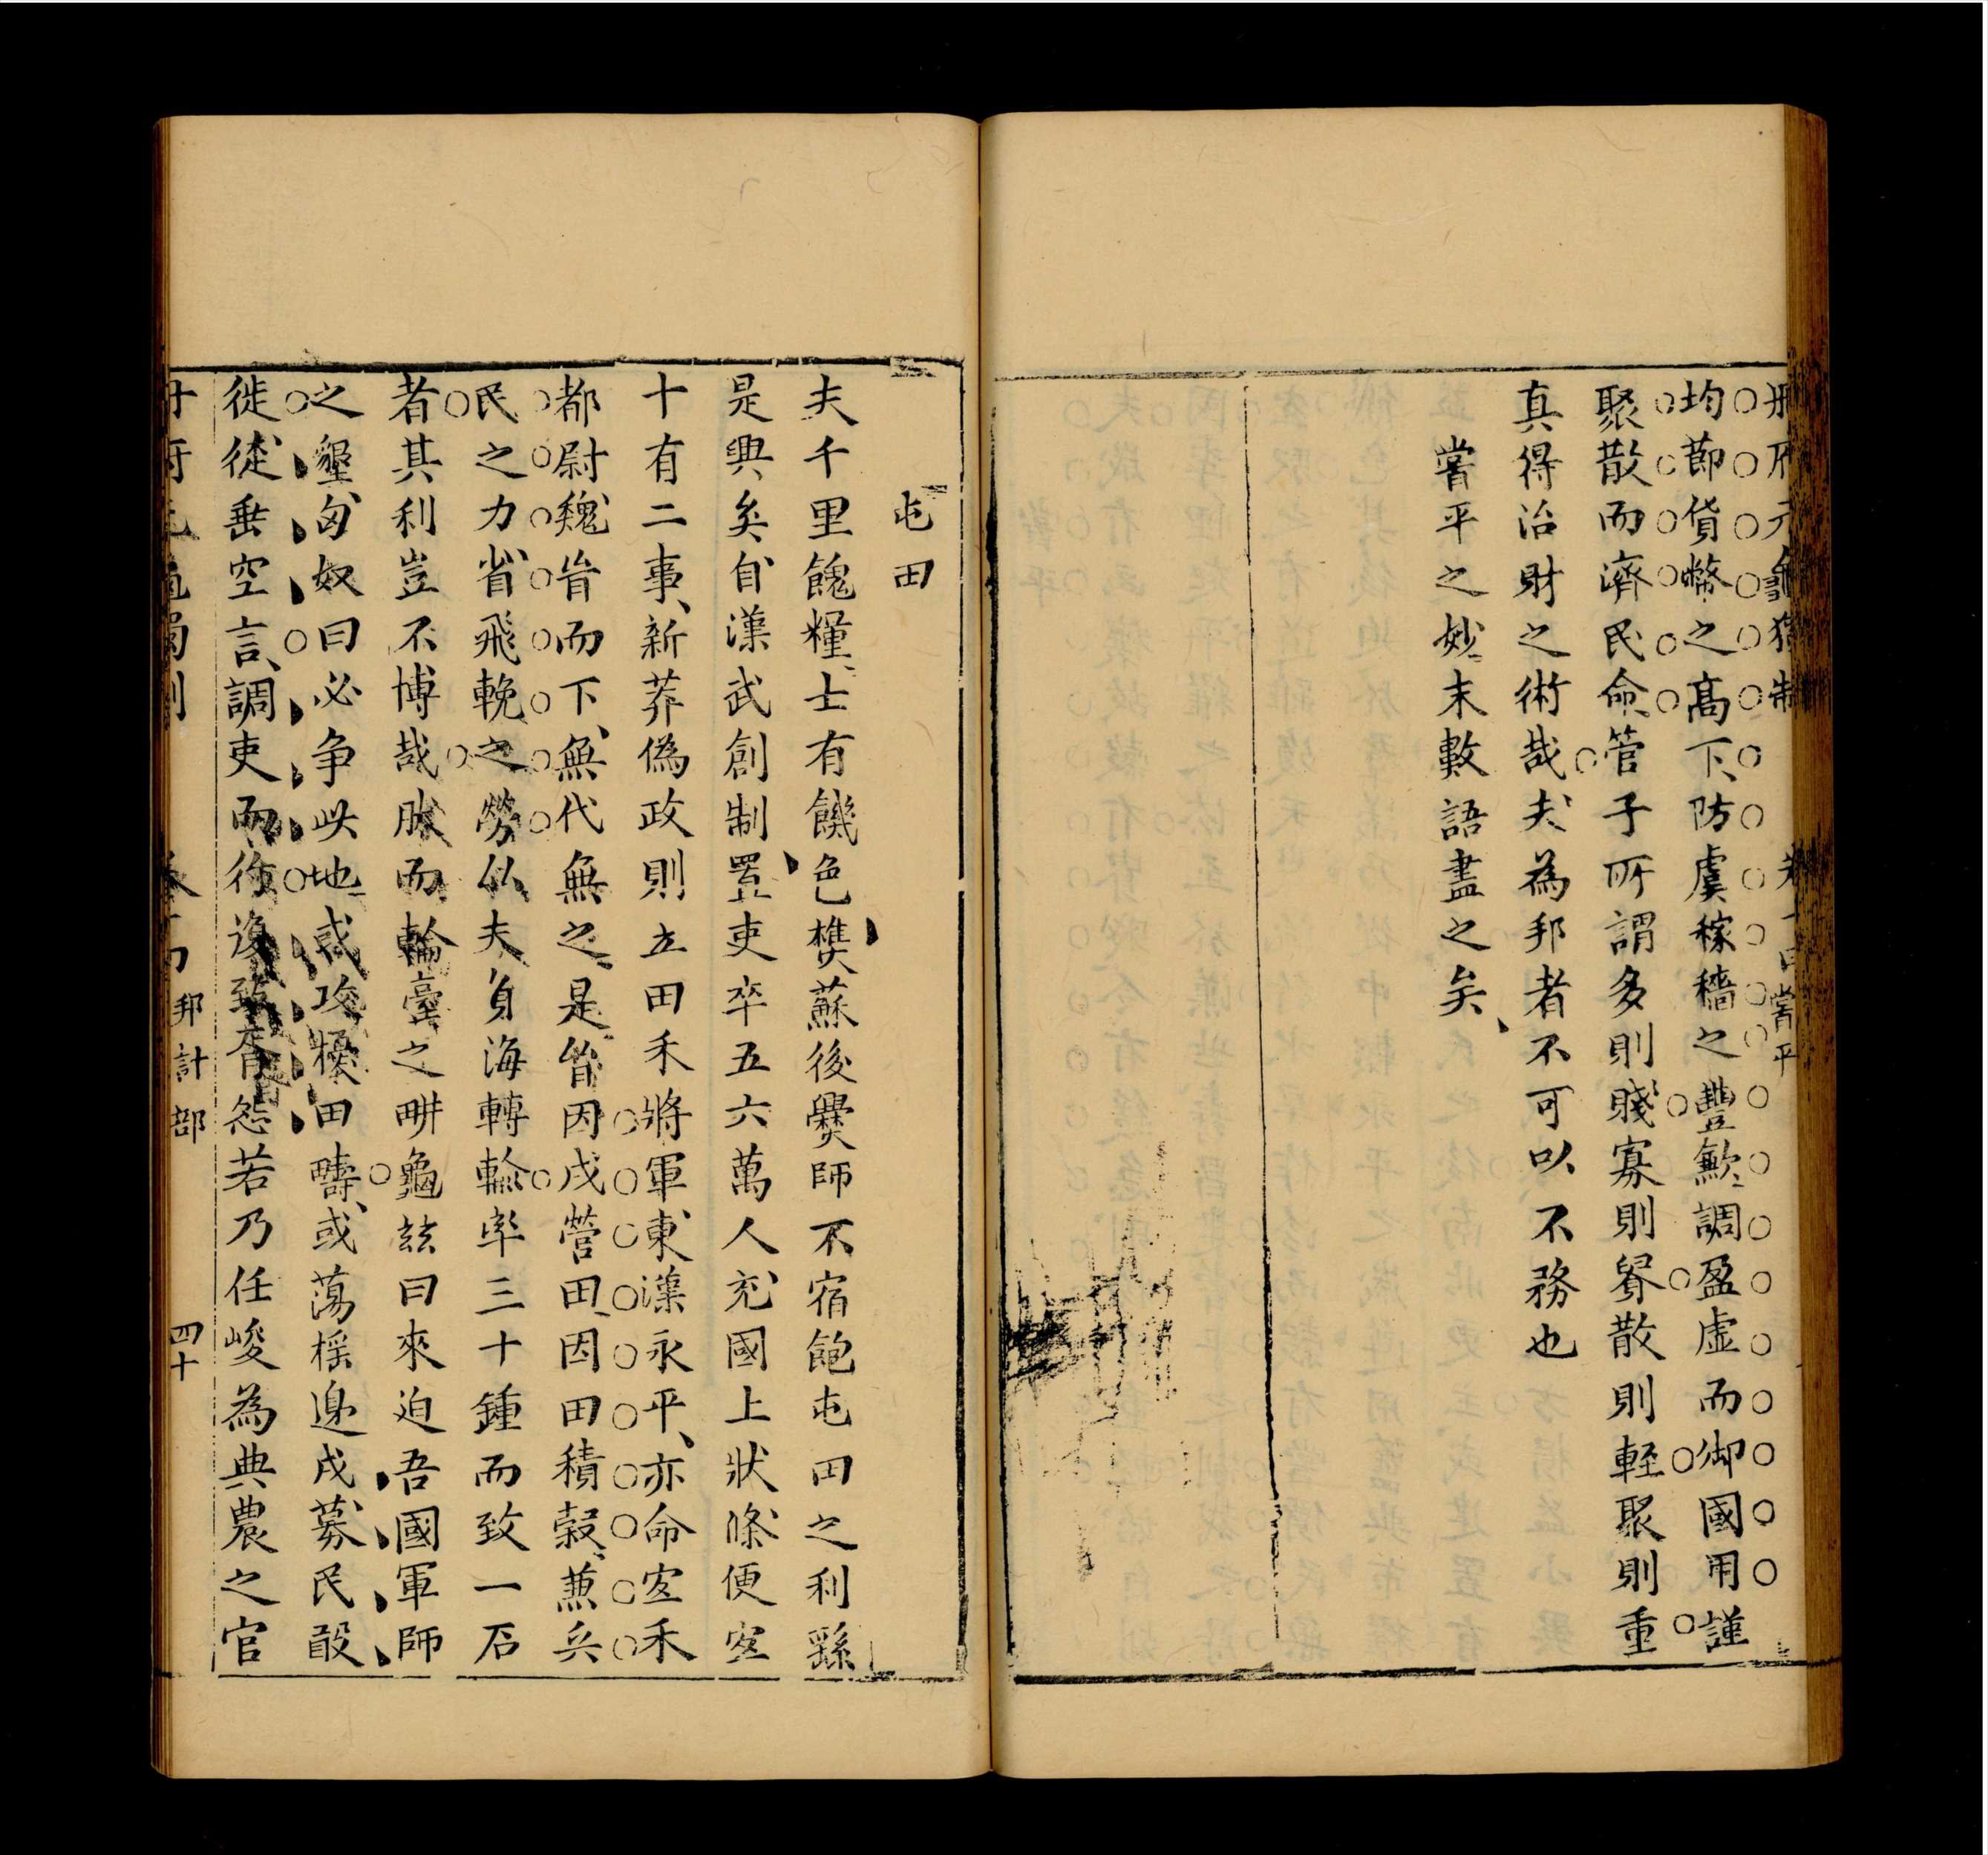 均節貨幣之高下防虞稼穡之豐歉調盈虛而御國用謹
聚散而濟民命管子所謂多則賤寡則貴散則輕聚則重
真得治財之術哉夫為邦者不可以不務也
嘗平之妙末數語盡之矣
屯田
夫千里餽糧士有饑色樵蘇後爨師不宿飽屯田之利繇
是興矣自漢武創制置吏卒五六萬人充國上狀條便宜
十有二事新莽偽政則立田禾將軍東漢永平亦命宜禾
都尉魏晉而下無代無之是皆因戍營田因田積穀兼兵
民之力省飛輓之勞似夫負海轉輸率三十鍾而致一石
者其利豈不博哉
然而輪臺之畊龜玆曰來迫吾國軍師
之墾匈奴曰必争此地或攻擾田疇或蕩搖邊戍募民敢
徙徒垂空言調吏而往復致胥怨若乃任峻為典農之官
邦計部
四十